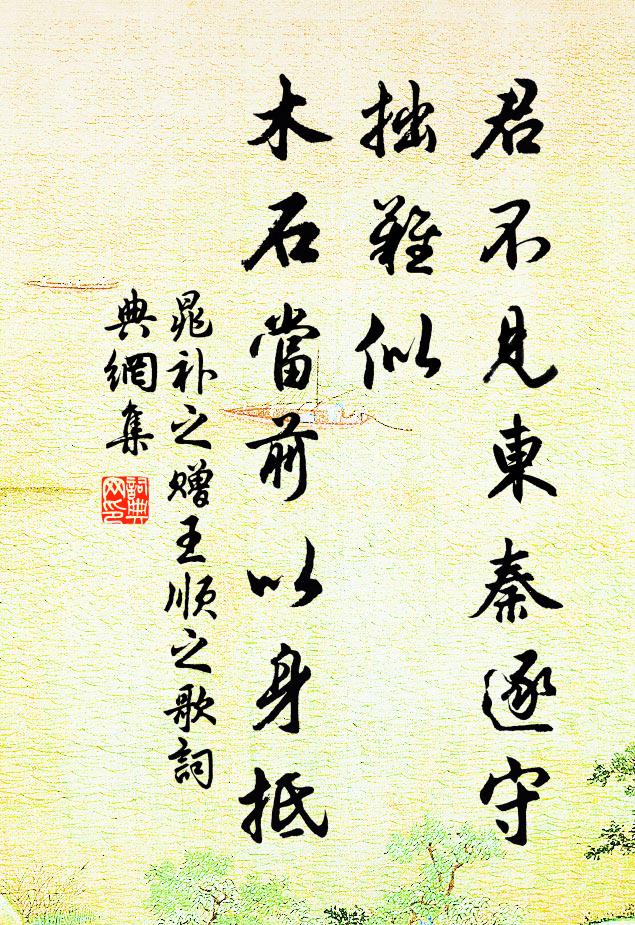 君不見東秦逐守
拙難似
木石當前以身抵
晁补之赠王順之歌詞
典網集
詞典網印